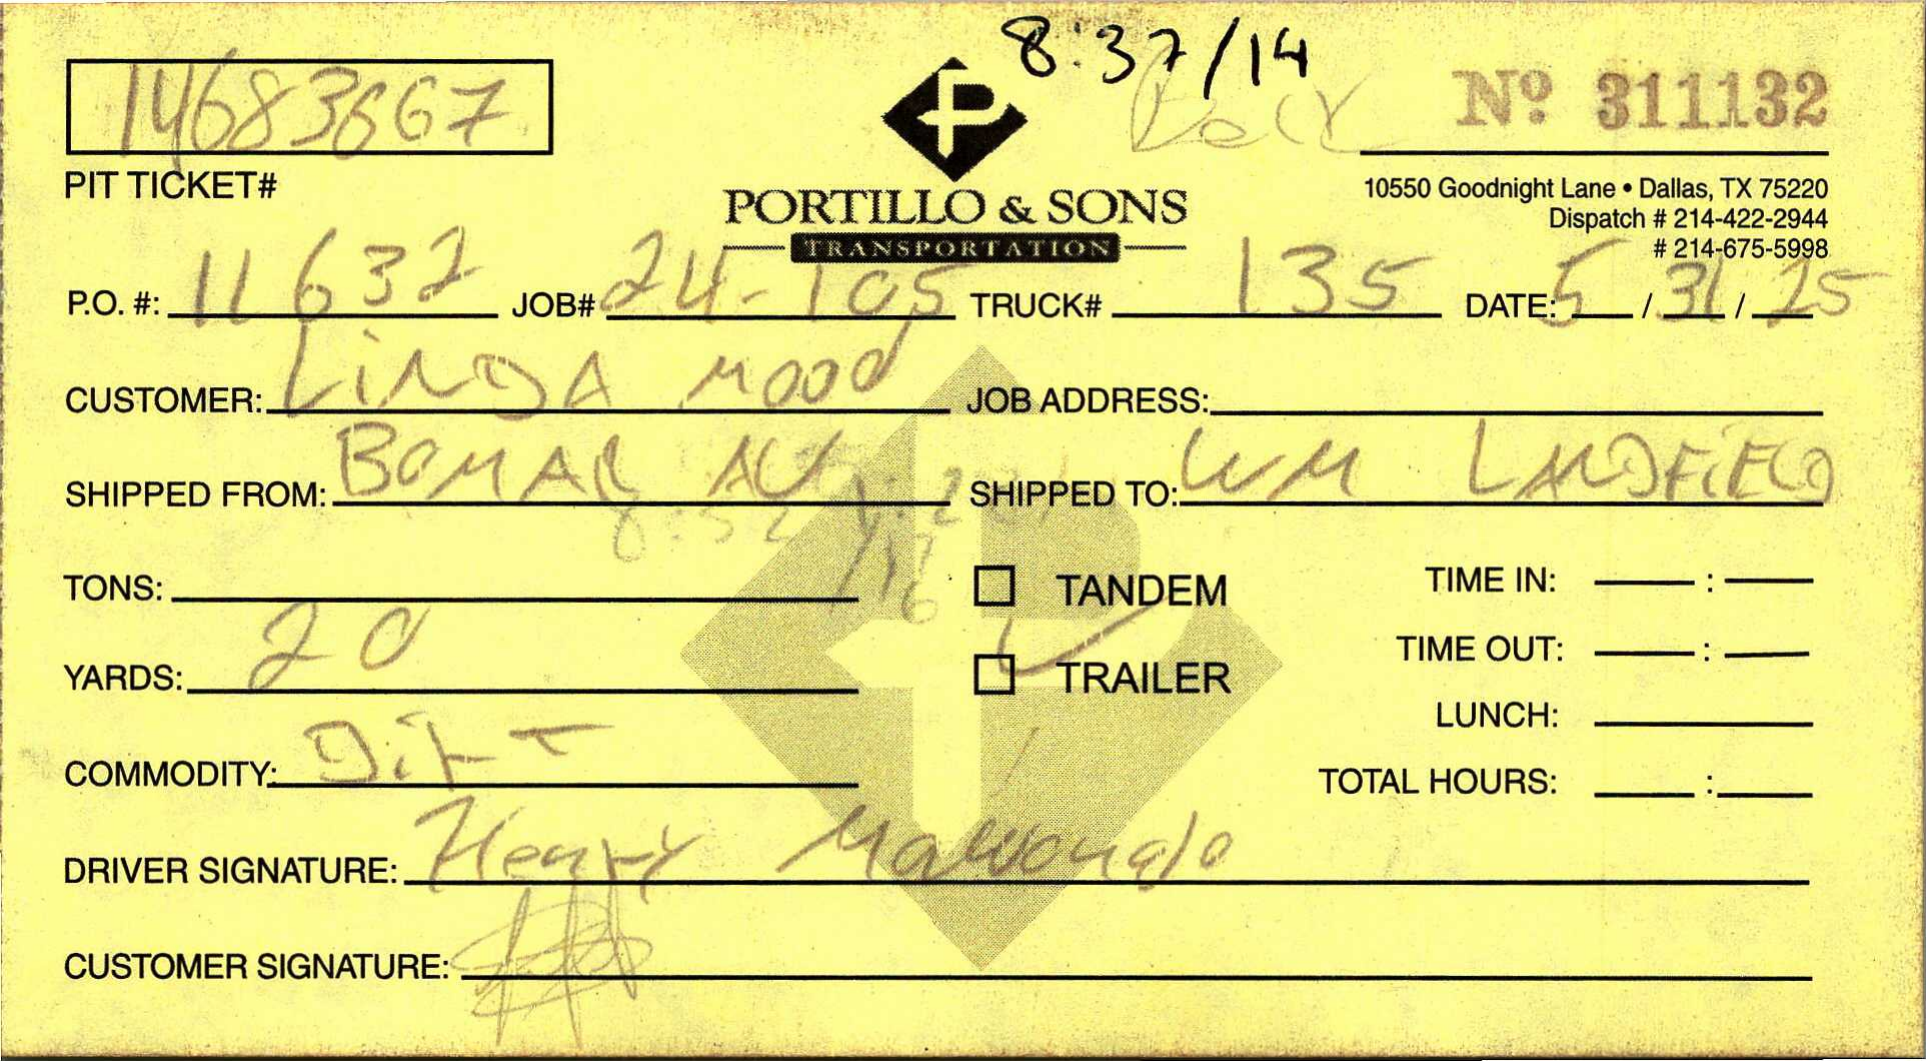 8:37/14
14683667
Nº 311132
PIT TICKET#
PORTILLO & SONS
TRANSPORTATION
10550 Goodnight Lane • Dallas, TX 75220
Dispatch # 214-422-2944
# 214-675-5998
P.O. #: 11632 JOB# 24-105 TRUCK# 135 DATE: 5/31/25
CUSTOMER: LiNDA MOOD JOB ADDRESS:
SHIPPED FROM: BOMAR AV SHIPPED TO: WM LANDFiELD
TONS: TANDEM TIME IN: :
YARDS: 20 TRAILER TIME OUT: :
LUNCH:
COMMODITY: DiRT TOTAL HOURS: :
DRIVER SIGNATURE: Henry
CUSTOMER SIGNATURE: